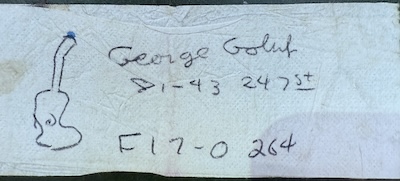 George Golub
81-43 247 st
F17-0 264